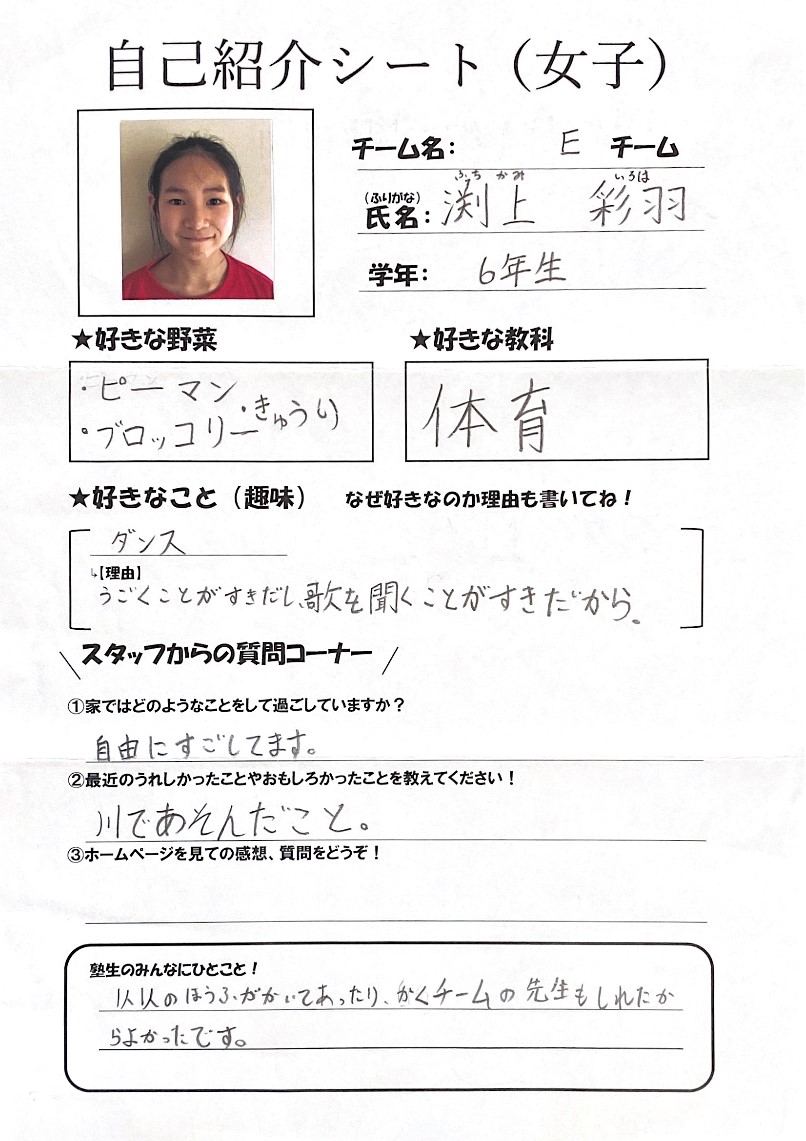 自己紹介シート(女子)
チーム名: E チーム
ふちかみ いろは
(ふりがな)
氏名: 渕上 彩羽
学年: 6年生
★好きな野菜
・ピーマン
・きゅうり
・ブロッコリー
★好きな教科
体育
★好きなこと(趣味) なぜ好きなのか理由も書いてね!
ダンス
↳【理由】
うごくことがすきだし、歌を聞くことがすきだから。
\ スタッフからの質問コーナー /
①家ではどのようなことをして過ごしていますか?
自由にすごしてます。
②最近のうれしかったことやおもしろかったことを教えてください!
川であそんだこと。
③ホームページを見ての感想、質問をどうぞ!
塾生のみんなにひとこと!
人人のほうふがかいてあったり、かくチームの先生もしれたか
らよかったです。